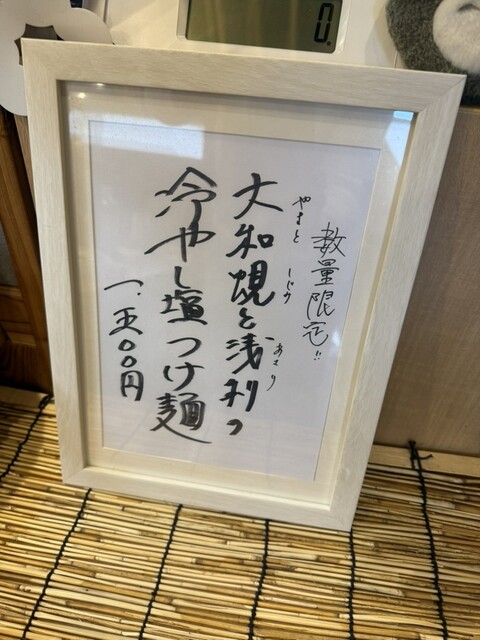 数量限定!!
やまと しじみ あさり
大和蜆と浅利の
冷やし塩つけ麺
一、五〇〇円
0.